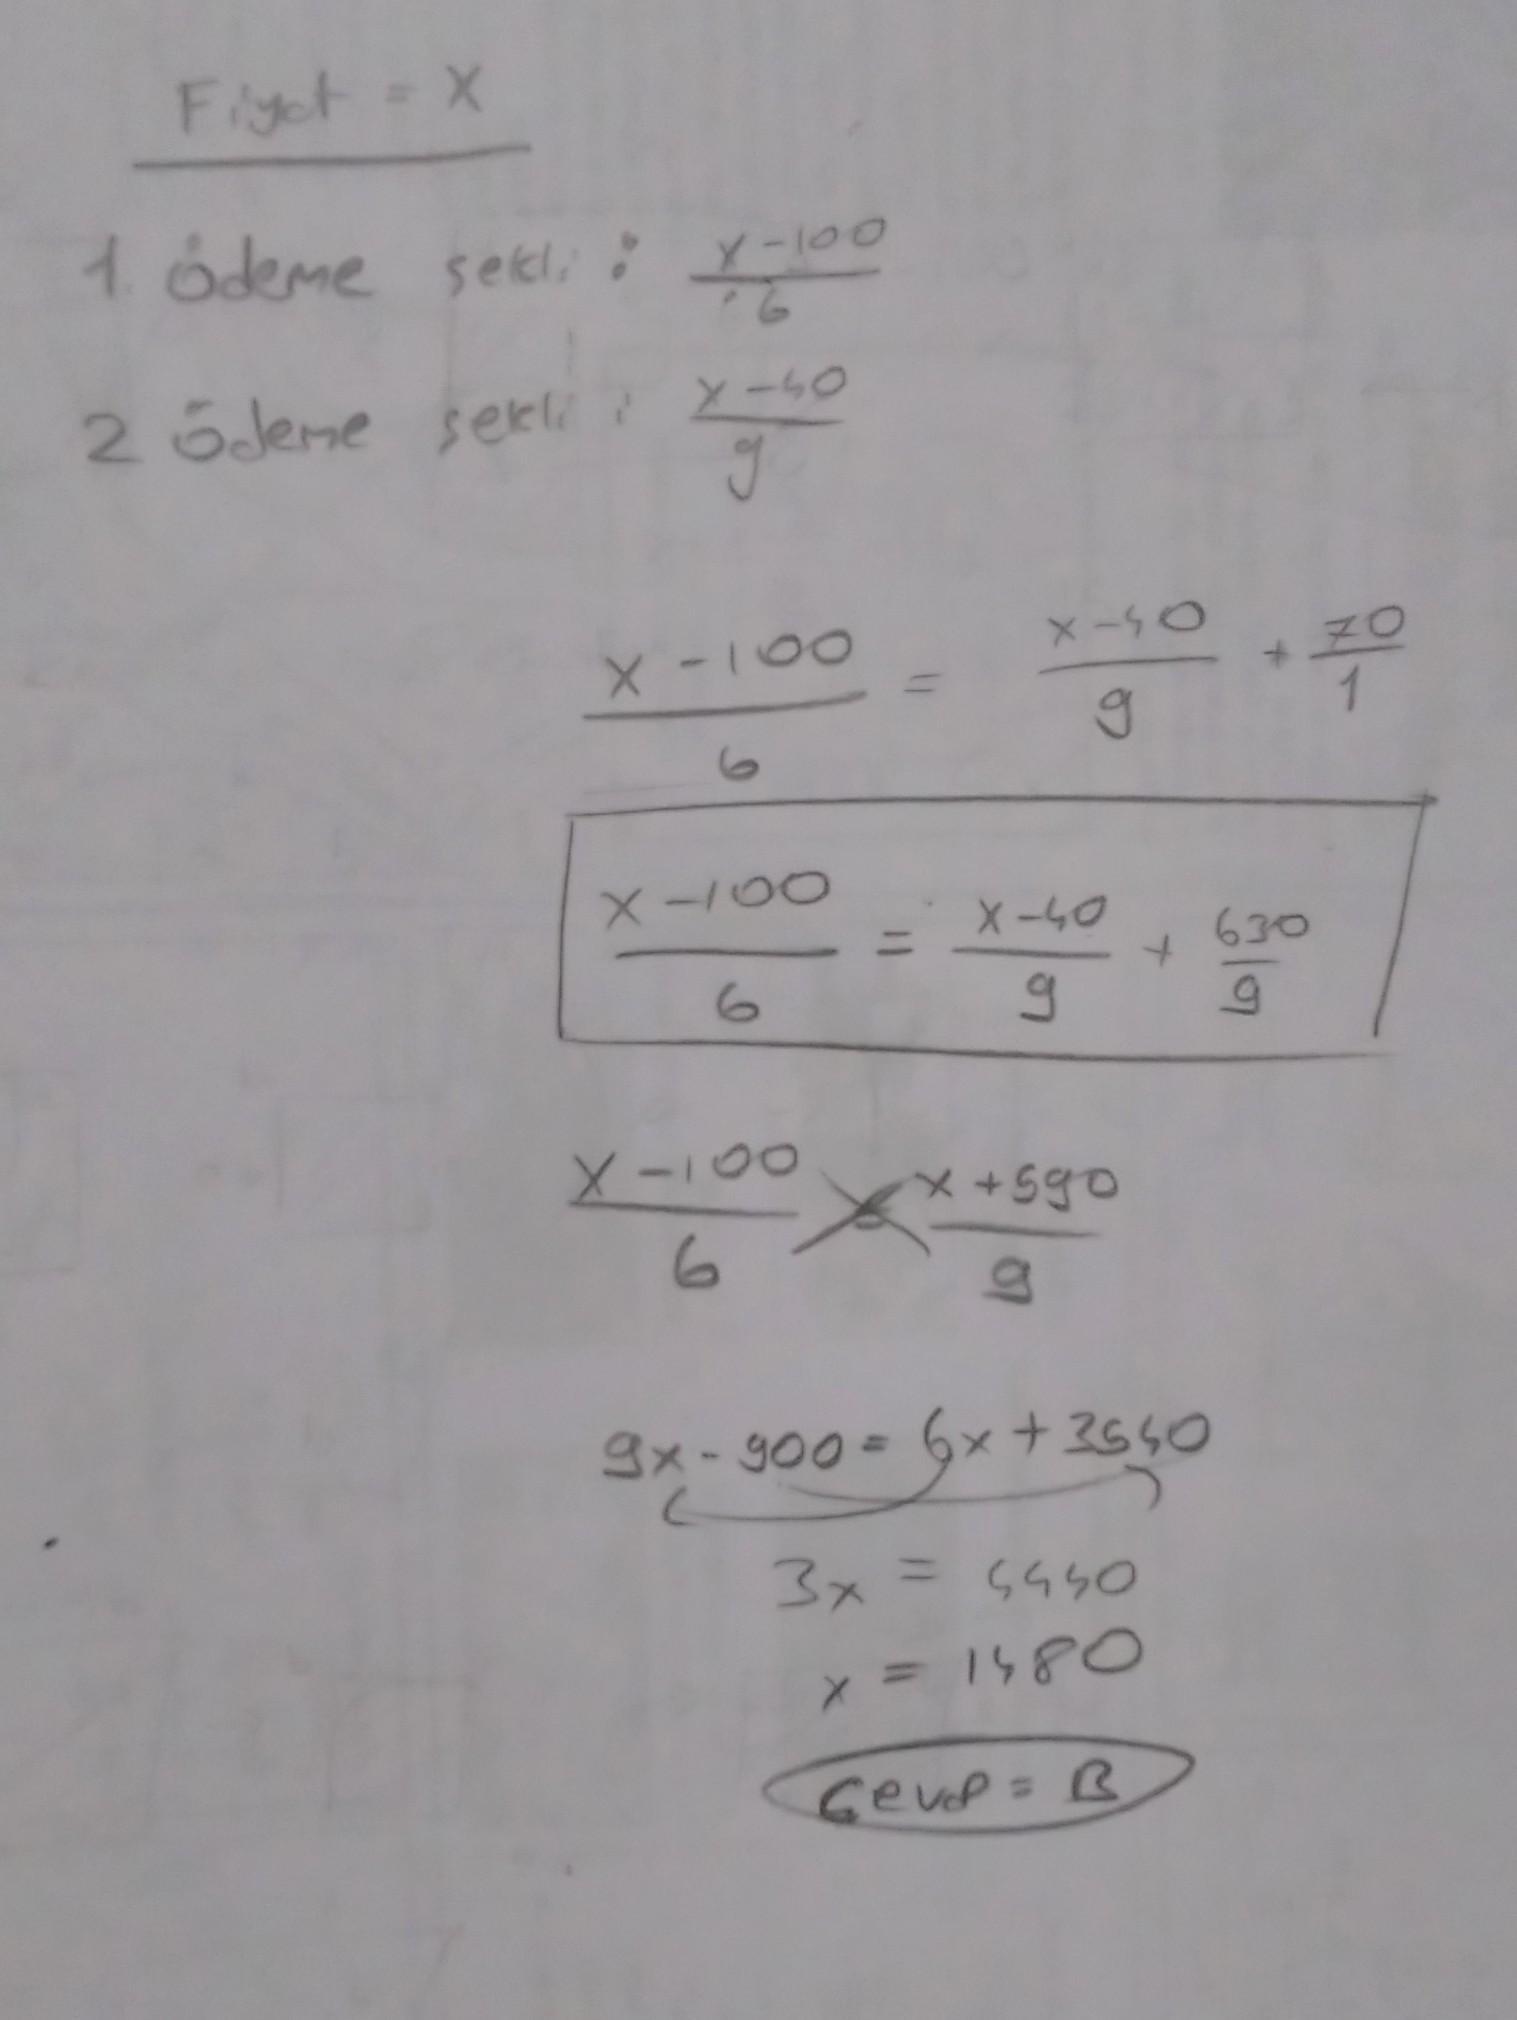 Fiyat = X
1. ödeme şekli : x-100/6
2 ödeme şekli : x-40/9
x-100/6 = x-40/9 + 70/1
x-100/6 = x-40/9 + 630/9
x-100/6 x+590/9
9x-900=6x+3540
3x = 4440
x = 1480
Cevap = B